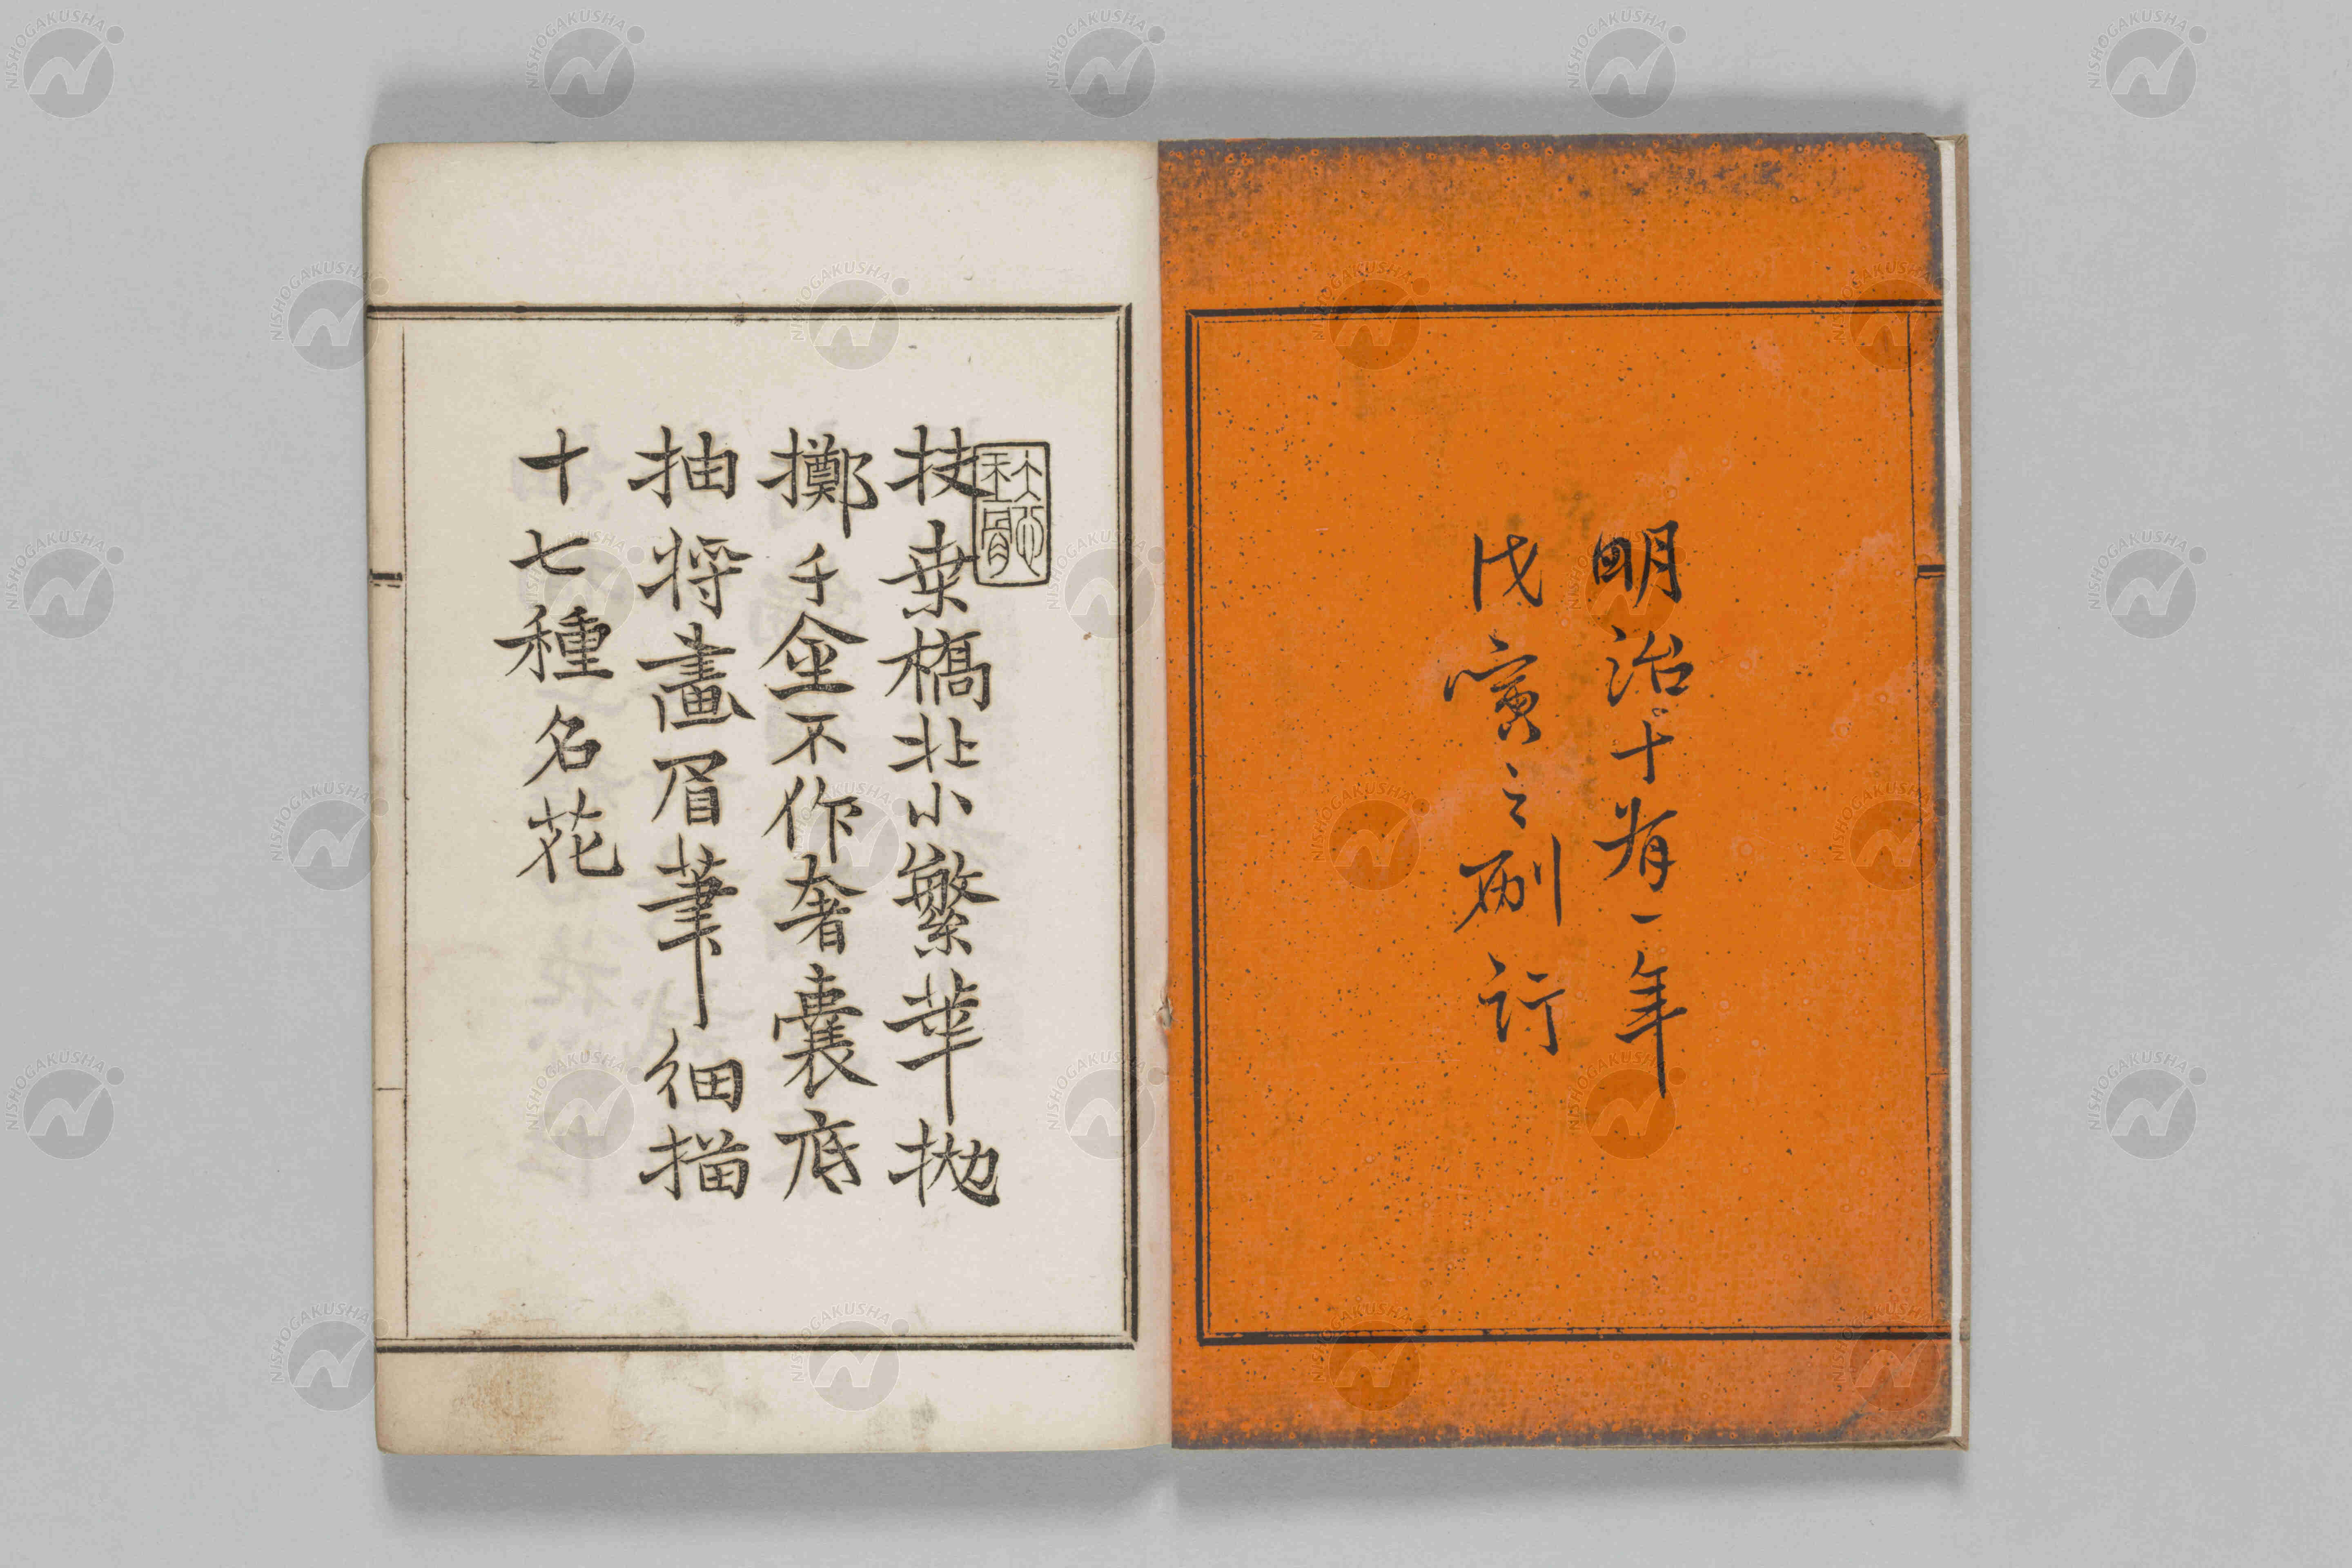 明治十有一年
戊寅之刷行
技桒橋北小繁華拋
擲千金不作奢囊底
抽將畫眉筆細描
十七種名花
NISHOGAKUSHA